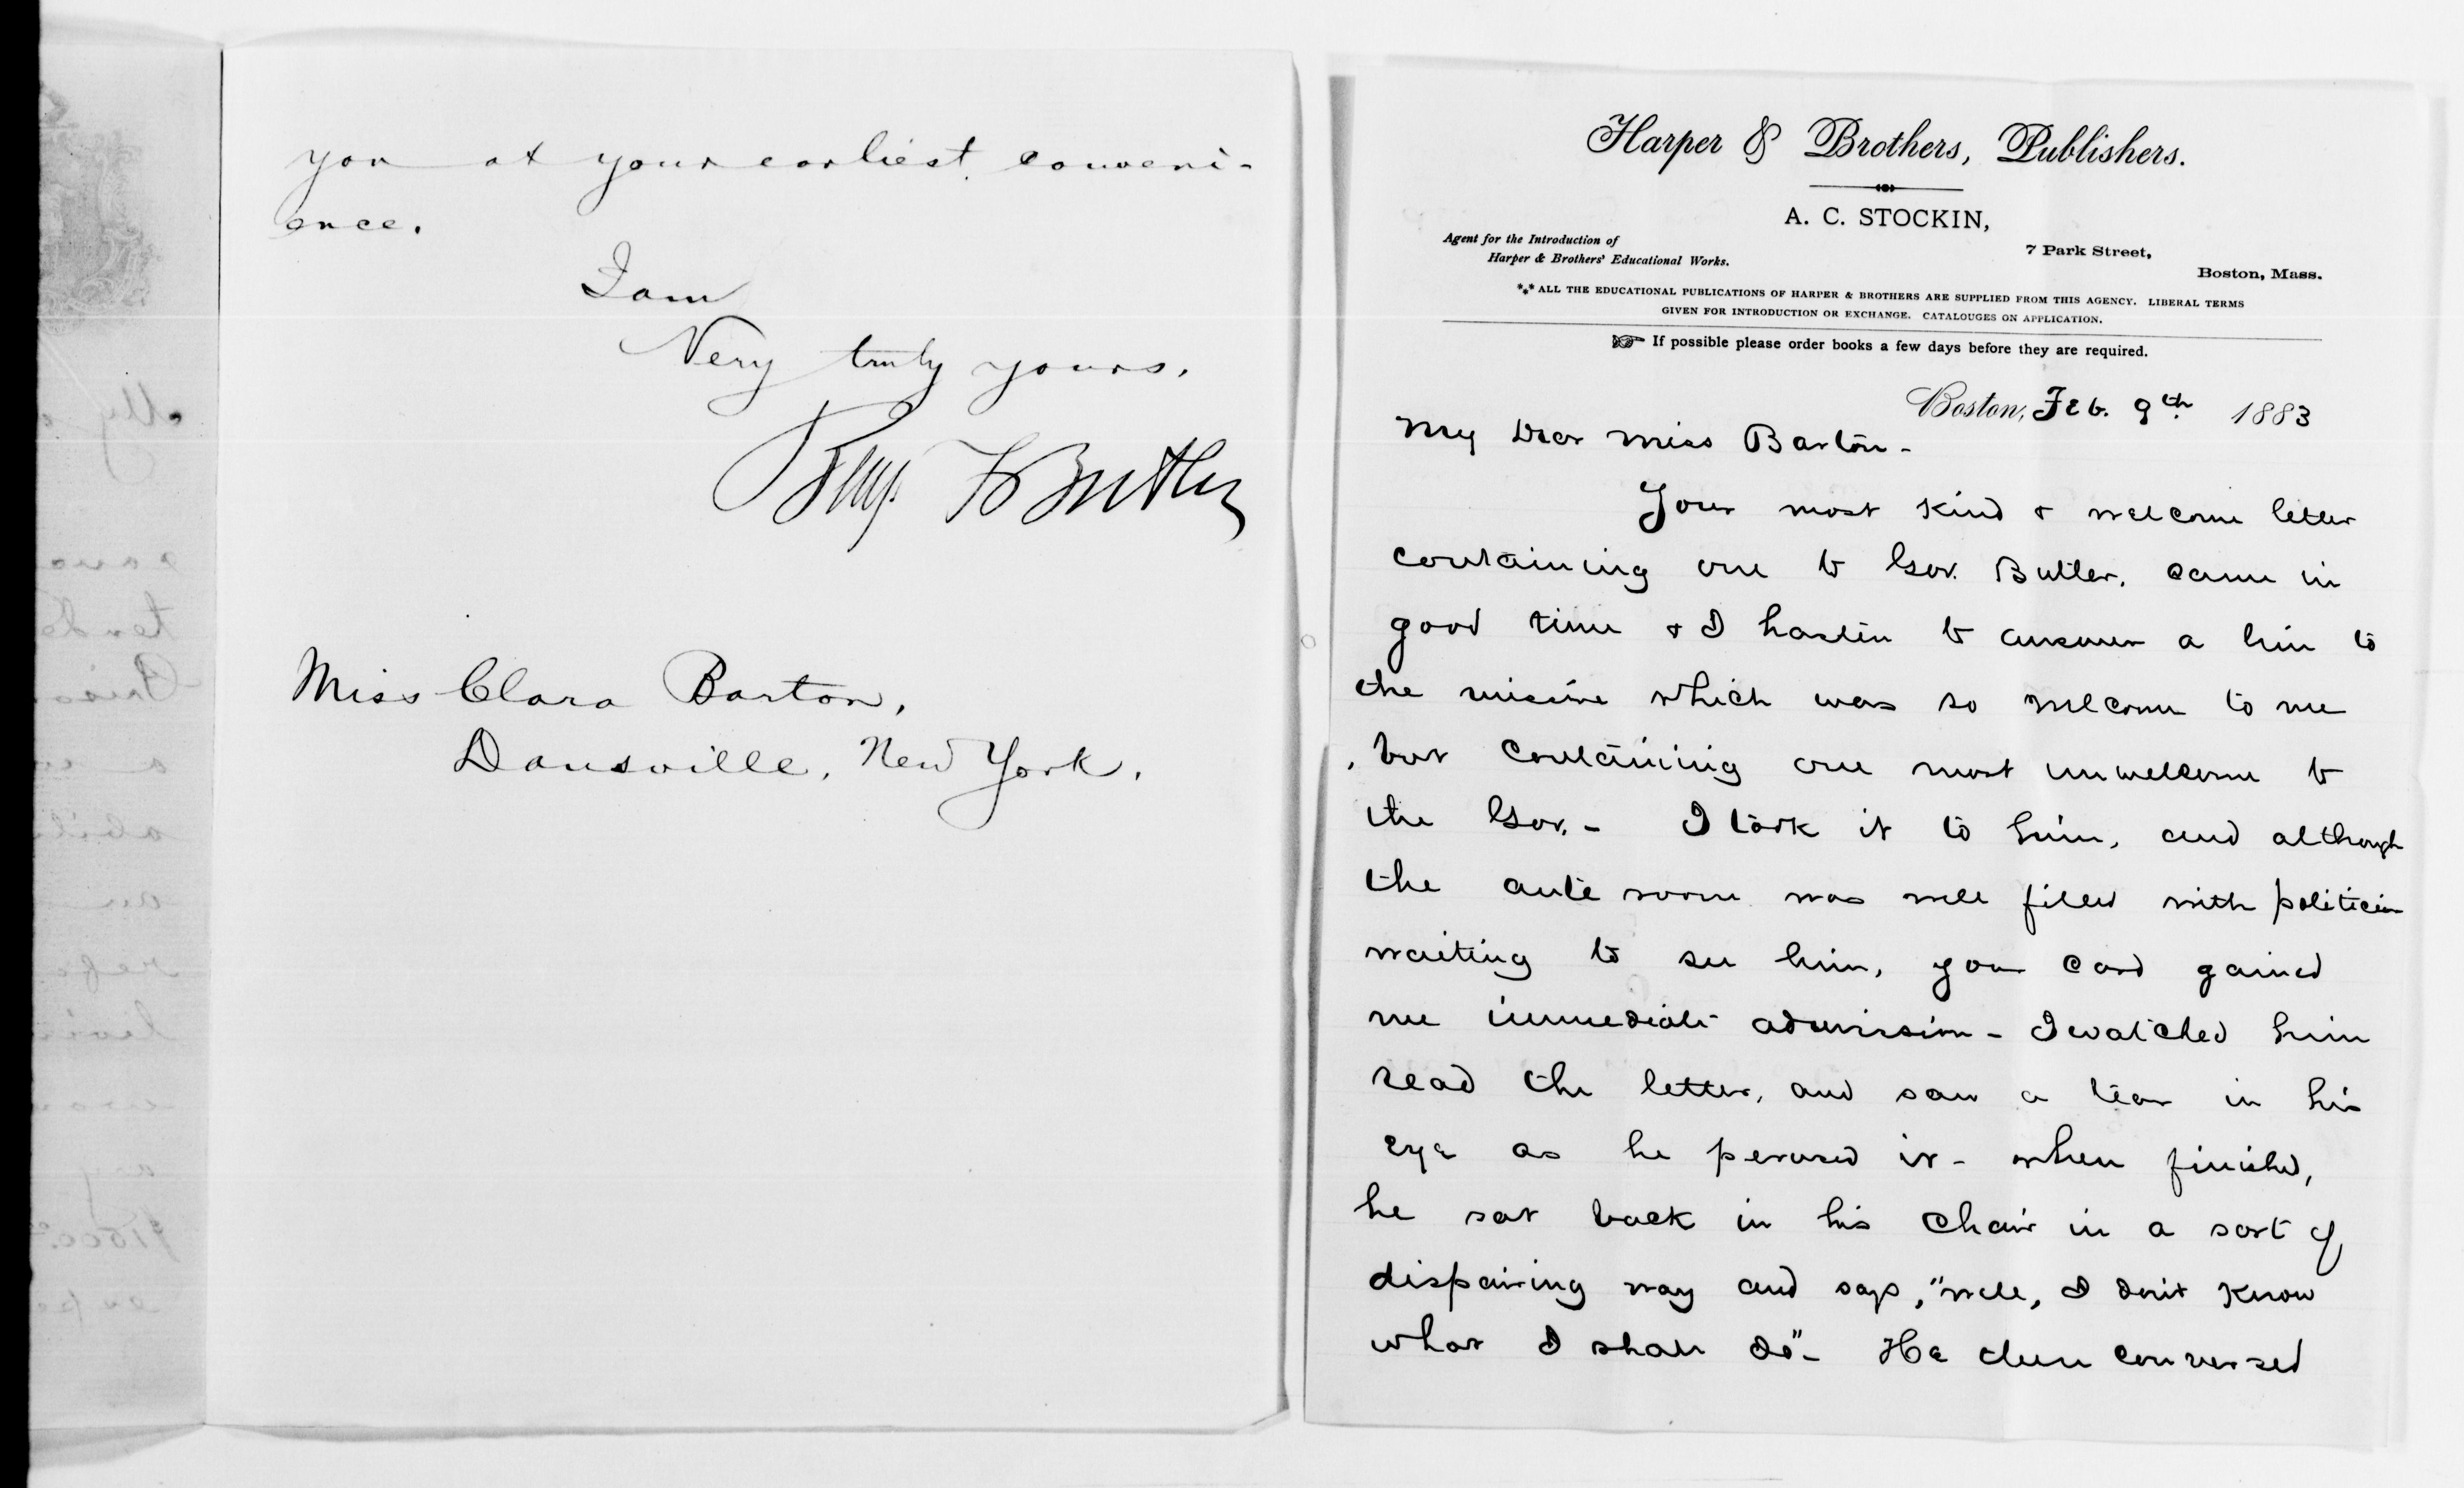 you at your earliest conveni-
ence.
I am
Very truly yours,
Benj F Butler
Miss Clara Barton,
Dansville, New York.
Harper & Brothers, Publishers.
A. C. STOCKIN,
Agent for the Introduction of
Harper & Brothers' Educational Works.
7 Park Street,
Boston, Mass.
*** ALL THE EDUCATIONAL PUBLICATIONS OF HARPER & BROTHERS ARE SUPPLIED FROM THIS AGENCY. LIBERAL TERMS
GIVEN FOR INTRODUCTION OR EXCHANGE. CATALOUGES ON APPLICATION.
☞ If possible please order books a few days before they are required.
Boston, Feb. 9th 1883
My Dear Miss Barton -
Your most kind & welcome letter
containing one to Gov. Butler, came in
good time & I hasten to answer a line to
the missive which was so welcome to me
, but containing one most unwelcome to
the Gov. - I took it to him, and although
the ante room was well filled with politician
waiting to see him, your card gained
me immediate admission - I watched him
read the letter, and saw a tear in his
eye as he perused it - when finished,
he sat back in his chair in a sort of
dispairing way and says, "well, I don't know
what I shall do" - He then conversed